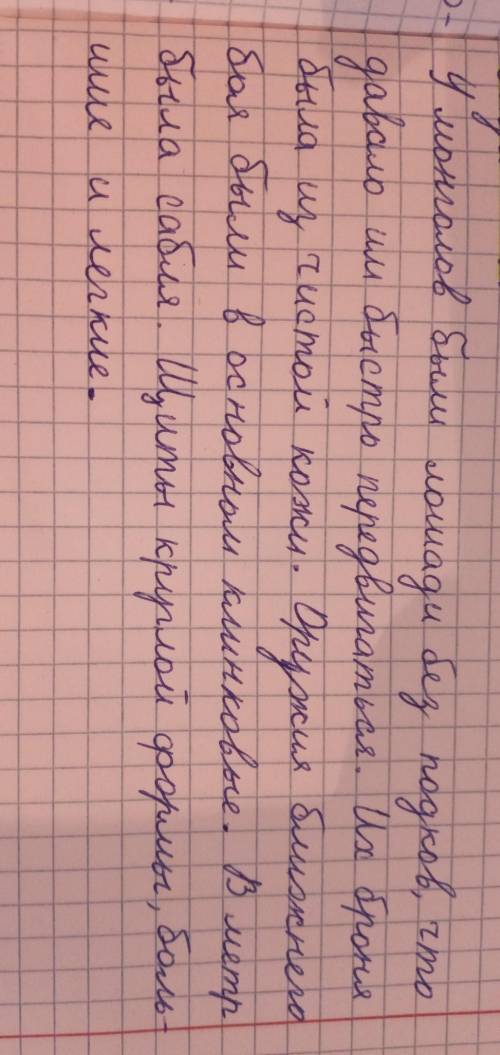 У монголов были лошади без подков, что
давало им быстро передвигаться. Их броня
была из чистой кожи. Оружия ближнего
боя были в основном клинковые. В метр
была сабля. Щиты круглой формы, боль-
шие и легкие.